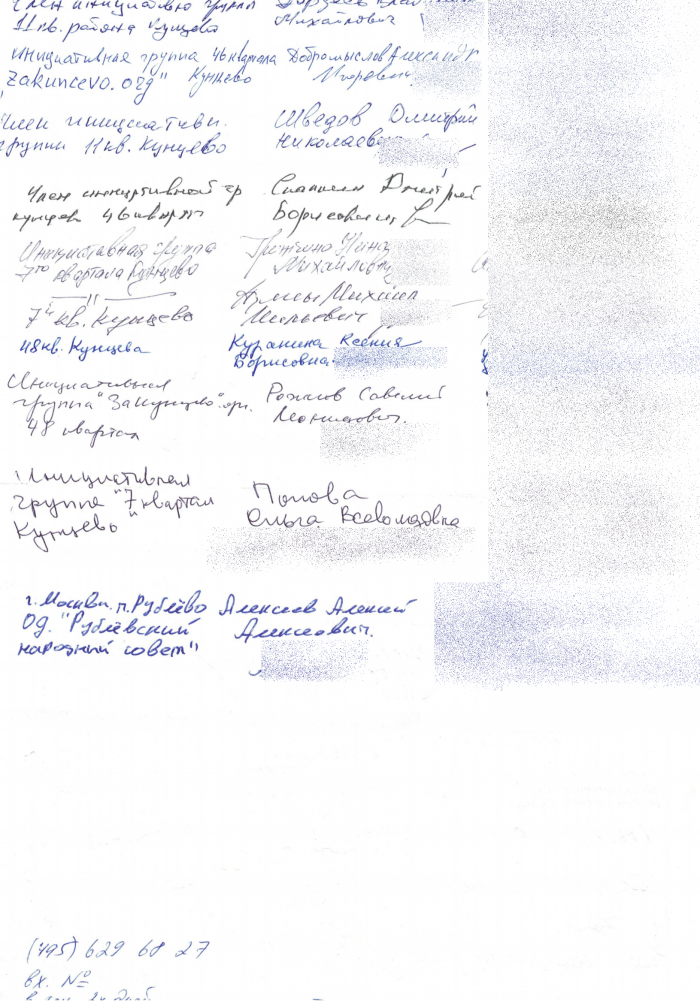 Член инициативно группы
11 кв. района Кунцево Михайлович
инициативная группа 46 квартала Добромыслов Александр
"Zakuncevo.org" Кунцево Игоревич
Член инициативн. Шведов Дмитрий
группы 11 кв. Кунцево Николаевич
Член инициативной гр Дмитрий
Кунцево 46 квартал Борисович
Инициативная группа Нина
7го квартала Кунцево Михайловна
Михаил
7й кв. Кунцево Ильич
48 кв. Кунцева Куранина Ксения
Борисовна.
Инициативная
группа "Закунцево".орг. Савелий
48 квартал Леонидович.
Инициативная
группа "7 квартал Попова
Кунцево" Ольга Всеволодовна
г. Москва. п. Рублёво Алексеев Алексей
ОД. "Рублёвский Алексеевич.
народный совет"
(495) 629 68 27
вх. №